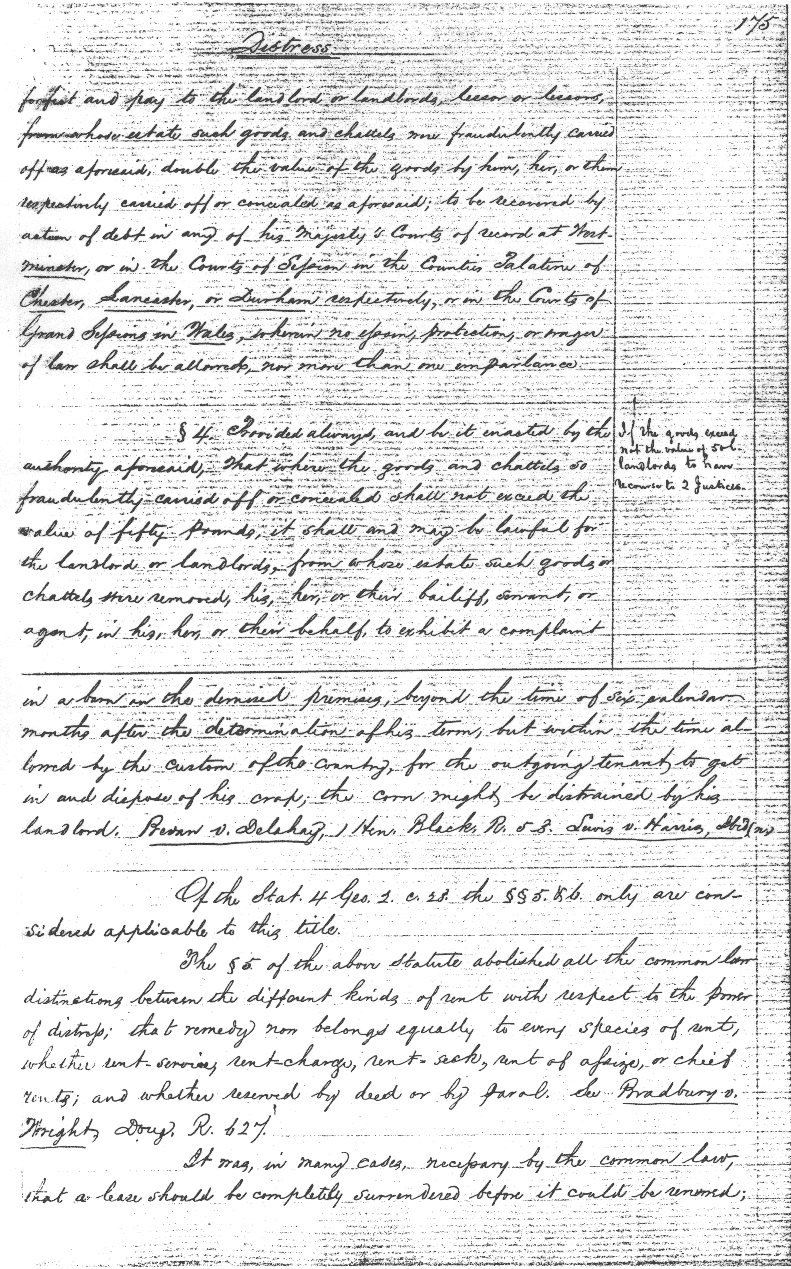 175
Distress
forfeit and pay to the landlord or landlords, lessor or lessors,
from whose estate such goods and chattels were fraudulently carried
off as aforesaid, double the value of the goods by him, her, or them
respectively carried off or concealed as aforesaid; to be recovered by
action of debt in any of his Majesty's Courts of record at West-
minster, or in the Courts of Session in the Counties Palatine of
Chester, Lancaster, or Durham respectively, or in the Courts of
Grand Sessions in Wales, wherein no essoin, protection, or wager
of law shall be allowed, nor more than one imparlance.
§ 4. Provided always, and be it enacted by the
authority aforesaid, That where the goods and chattels so
fraudulently carried off or concealed shall not exceed the
value of fifty Pounds, it shall and may be lawful for
the landlord or landlords, from whose estate such goods or
chattels were removed, his, her, or their bailiff, servant, or
agent, in his, her, or their behalf, to exhibit a complaint
If the goods exceed
not the value of 50l.
landlords to have
recourse to 2 Justices.
in a barn on the demised premises, beyond the time of six calendar
months after the determination of his term, but within the time al-
lowed by the custom of the country, for the outgoing tenant to get
in and dispose of his crop; the corn might be distrained by his
landlord. Bevan v. Delahay, 1 Hen. Black. R. 5 8. Lewis v. Harris, Ibid (n.)
Of the Stat. 4 Geo. 2. c. 28. the §§ 5. & 6. only are con-
sidered applicable to this title.
The § 5 of the above Statute abolished all the common law
distinctions between the different kinds of rent with respect to the power
of distress; that remedy now belongs equally to every species of rent,
whether rent-service, rent-charge, rent-seck, rent of assize, or chief
rents; and whether reserved by deed or by parol. See Bradbury v.
Wright, Doug. R. 627.
It was, in many cases, necessary by the common law,
that a lease should be completely surrendered before it could be renewed;